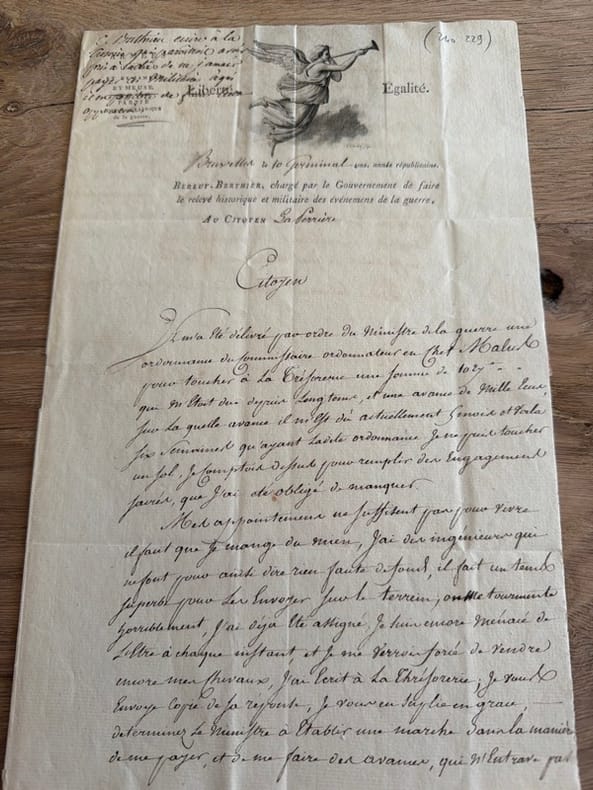 C. Berthier écrire à la
(240 229)
ET MEUSE.
de la guerre.
Liberté. Égalité.
Bruxelles le 10 Germinal année républicaine.
BERLUT-BERTHIER, chargé par le Gouvernement de faire
le relevé historique et militaire des événemens de la guerre,
AU CITOYEN La Perrière
Citoyen
Il m'a été délivré par ordre du Ministre de la guerre une
ordonnance du Commissaire ordonnateur en Chef Malus
pour toucher à La Trésorerie une somme de
qui m'était due depuis Longtems, et une avance de Mille Ecus,
sur La quelle avance il m'est dû actuellement mois et voila
six Semaines qu'ayant Ladite ordonnance Je ne puis toucher
un sol, Je comptois dessus pour remplir des Engagemens
sacrés, que J'ai été obligé de manquer.
Mes appointemens ne suffisent pas pour vivre
il faut que Je mange du mien, J'ai des ingénieurs qui
ne font pour ainsi dire rien faute de fonds, il fait un tems
superbe pour Les Envoyer sur le terrein, on me tourmente
horriblement, J'ai déja été assigné, Je suis encore ménacé de
L'Etre à chaque instant, et Je me verrai forcé de vendre
encore mes chevaux, J'ai Ecrit à La Thrésorerie, Je vous
Envoye Copie de sa réponse, Je vous en suplie en grace,
determinez Le Ministre à Etablir une marche dans La manière
de me payer, et de me faire des avances, qui N'Entrave pas